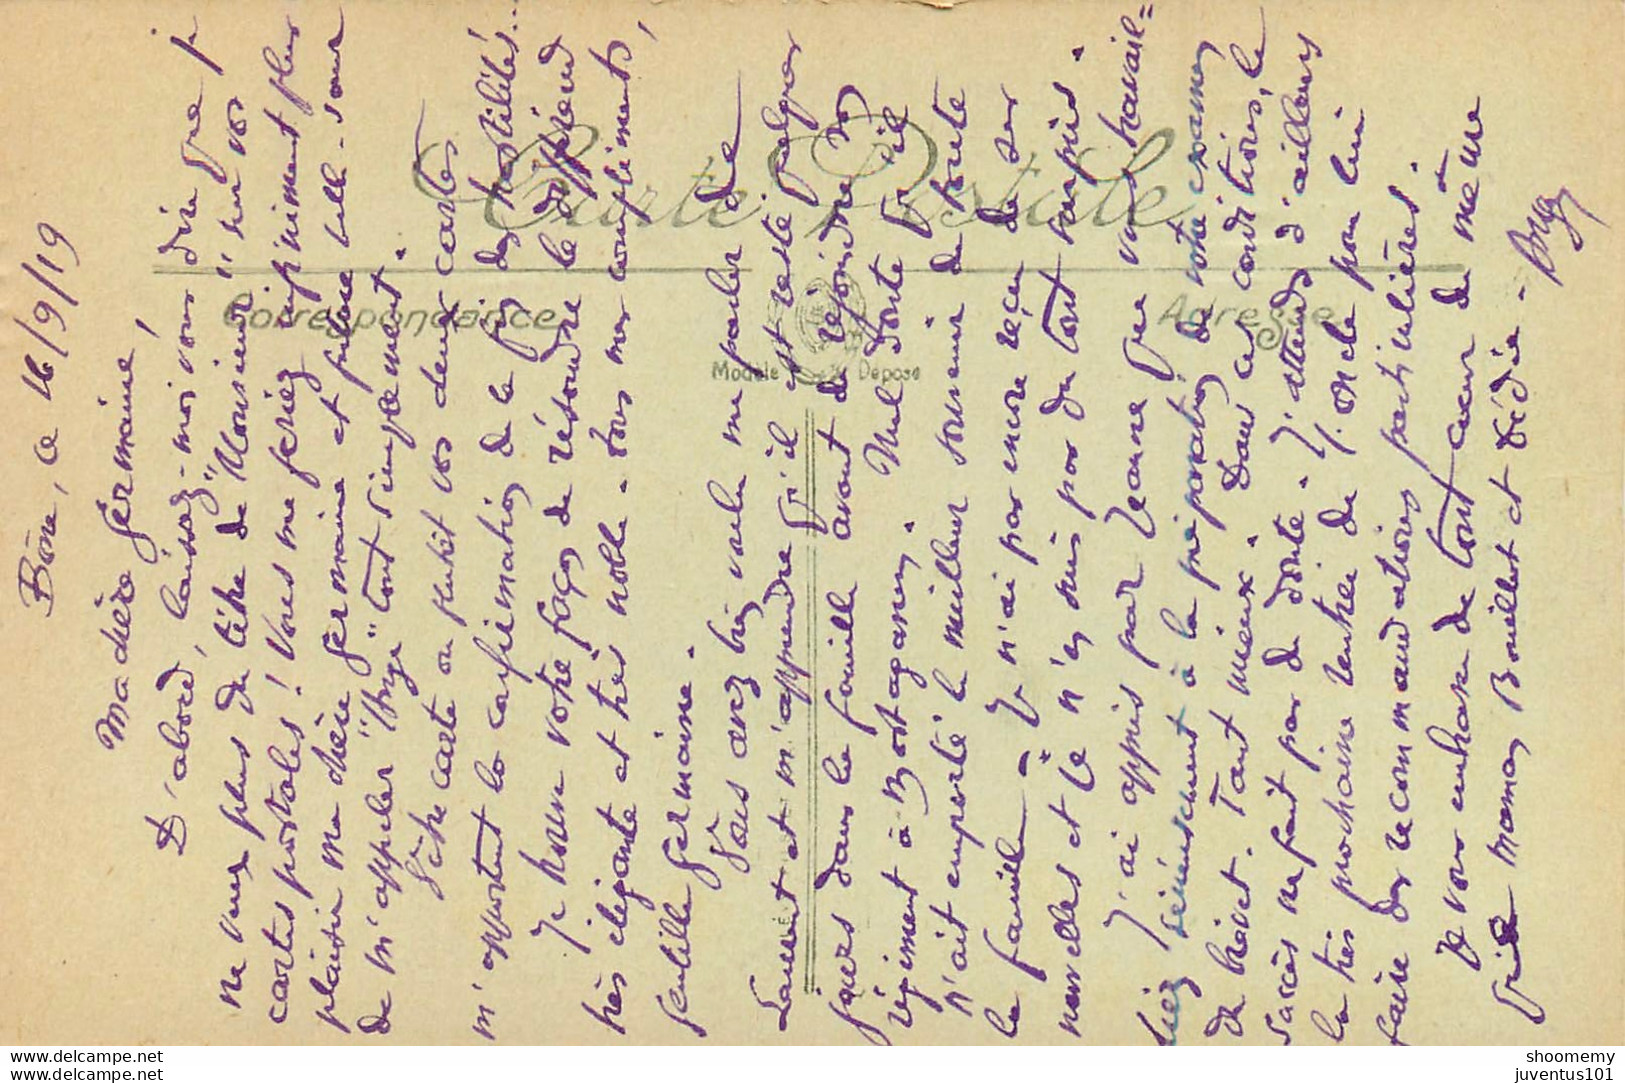 Bône, ce 16/9/19
Ma chère Germaine,
D'abord, laissez-moi vous dire que je
ne veux plus du titre de "Monsieur" sur vos
cartes postales ! Vous me feriez infiniment plus
plaisir ma chère Germaine et future belle-sœur
de m'appeler tout simplement.
Votre carte ou plutôt vos deux cartes
m'apportent la confirmation de la fin des hostilités...
Je trouve votre façon de résoudre le différend
très élégante et très noble. Tous mes compliments,
gentille Germaine.
Vous avez bien voulu me parler de
Laurent et m'apprendre qu'il est resté quelques
jours dans la famille avant de rejoindre son
régiment à Mostaganem. Nul doute qu'il
n'ait emporté le meilleur souvenir de toute
la famille. Je n'ai pas encore reçu de ses
nouvelles et je n'en suis pas du tout surpris.
J'ai appris par Jeanne que vous travail=
liez sérieusement à la préparation de votre examen
de brevet. Tant mieux. Dans ces conditions, le
succès ne fait pas de doute. J'attends d'ailleurs
la très prochaine rentrée de l'oncle pour lui
faire des recommandations particulières.
Je vous embrasse de tout cœur de même
que maman Bouillet et Dédée.
Carte Postale
Correspondance
Adresse
Modèle Déposé
www.delcampe.net
www.delcampe.net
shoomemy
juventus101